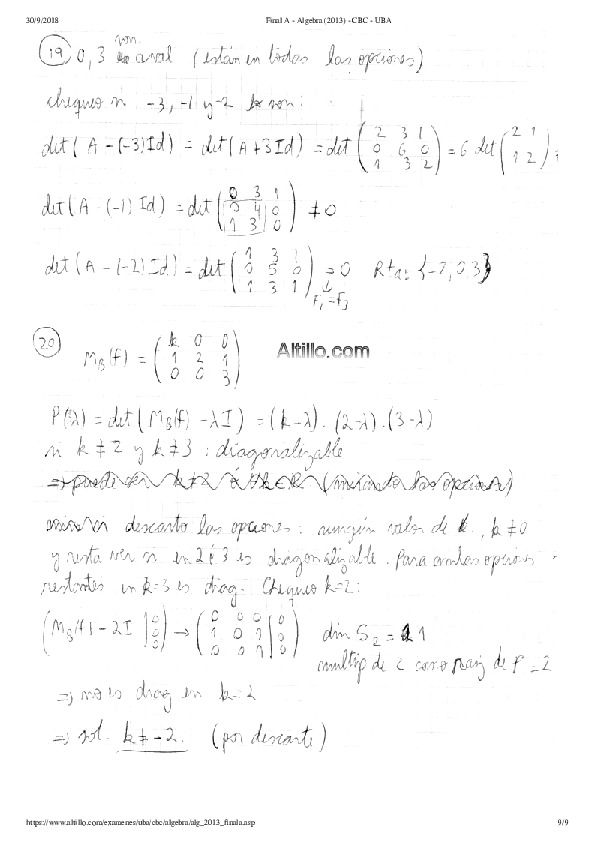 30/9/2018 Final A - Algebra (2013) - CBC - UBA
19 0, 3 son aval (están en todas las opciones)
chequeo si -3, -1 y -2 lo son:
det(A - (-3)Id) = det(A + 3Id) = det ( 2 3 1 / 0 6 0 / 1 3 2 ) = 6 det ( 2 1 / 1 2 )
det(A - (-1)Id) = det ( 0 3 1 / 0 4 0 / 1 3 0 ) ≠ 0
det(A - (-2)Id) = det ( 1 3 1 / 0 5 0 / 1 3 1 ) = 0 Rta: {-2, 0, 3}
F₁ = F₃
20 M_B(f) = ( k 0 0 / 1 2 1 / 0 0 3 )
Altillo.com
P(λ) = det(M_B(f) - λI) = (k-λ).(2-λ).(3-λ)
si k ≠ 2 y k ≠ 3 : diagonalizable
descarto las opciones: ningún valor de k, k ≠ 0
y resta ver si en 2 ó 3 es diagonalizable. Para ambas opciones
restantes en k=3 es diag. Chequeo k=2:
(M_B(f) - 2I | 0 0 0) → ( 0 0 0 | 0 / 1 0 1 | 0 / 0 0 1 | 0 ) dim S₂ = 1
multip de 2 como raiz de P = 2
⇒ no es diag en k=2
⇒ sol. k ≠ -2. (por descarte)
https://www.altillo.com/examenes/uba/cbc/algebra/alg_2013_finala.asp 9/9